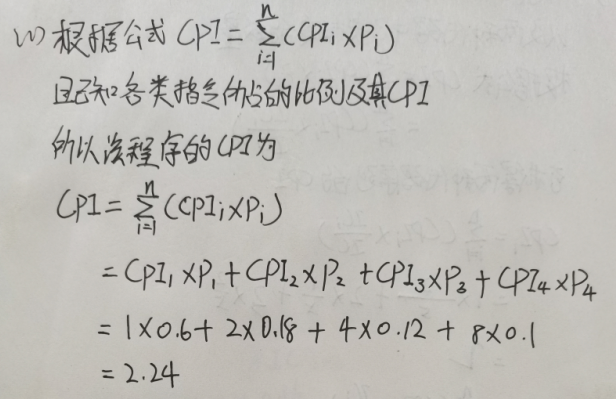 (1) 根据公式 CPI = ∑_{i=1}^{n} (CPIi × Pi)
且已知各类指令所占的比例及其CPI
所以该程序的CPI为
CPI = ∑_{i=1}^{n} (CPIi × Pi)
= CPI₁ × P₁ + CPI₂ × P₂ + CPI₃ × P₃ + CPI₄ × P₄
= 1 × 0.6 + 2 × 0.18 + 4 × 0.12 + 8 × 0.1
= 2.24